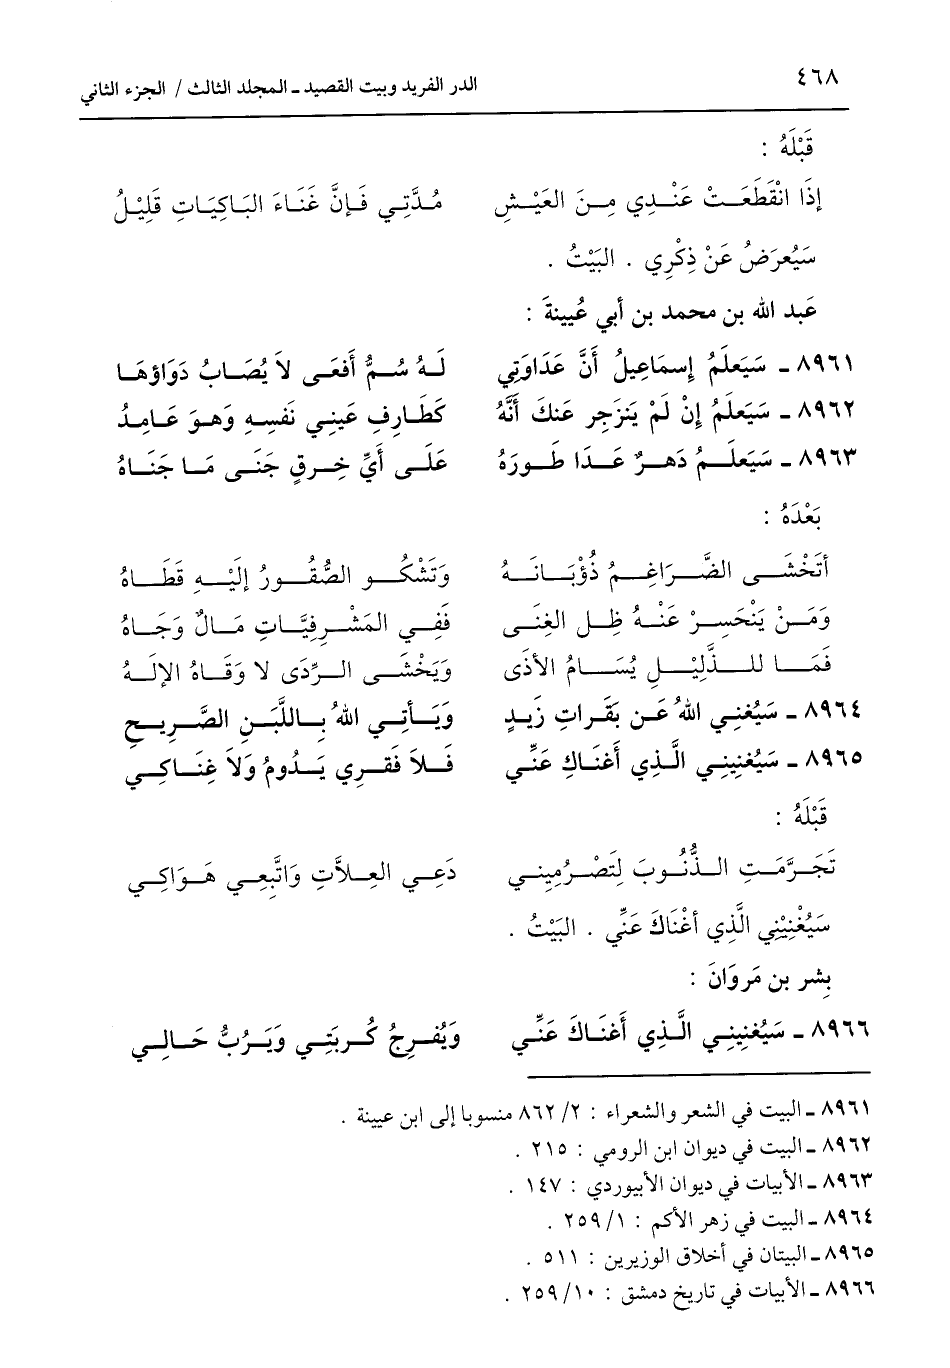 ٤٦٨ الدر الفريد وبيت القصيد ـ المجلد الثالث / الجزء الثاني
قَبْلَهُ :
إِذَا انْقَطَعَتْ عَنْدِي مِنَ العَيْشِ مُدَّتِي فَإِنَّ غَنَاءَ البَاكِيَاتِ قَلِيْلُ
سَيُعرَضُ عَنْ ذِكْرِي . البَيْتُ .
عَبد الله بن محمد بن أبي عُيينةَ :
٨٩٦١ ـ سَيَعلَمُ إِسمَاعِيلُ أَنَّ عَدَاوَتِي لَهُ سُمُّ أَفعَى لاَ يُصَابُ دَوَاؤهَا
٨٩٦٢ ـ سَيَعلَمُ إِنْ لَمْ يَنزَجِر عَنكَ أَنَّهُ كَطَارِفِ عَينِي نَفسِهِ وَهوَ عَامِدُ
٨٩٦٣ ـ سَيَعلَمُ دَهرٌ عَدَا طَورَهُ عَلَى أَيِّ خِرقٍ جَنَى مَا جَنَاهُ
بَعْدَهُ :
أتَخْشَى الضَّرَاغِمُ ذُؤْبَانَهُ وَتَشْكُو الصُّقُورُ إِلَيْهِ قَطَاهُ
وَمَنْ يَنْحَسِرْ عَنْهُ ظِل الغِنَى فَفِي المَشْرِفِيَّاتِ مَالٌ وَجَاهُ
فَمَا للذَّلِيْلِ يُسَامُ الأذَى وَيَخْشَى الرِّدَى لا وَقَاهُ الإلَهُ
٨٩٦٤ ـ سَيُغنِي اللهُ عَن بَقَراتِ زَيدٍ وَيَأتِي اللهُ بِاللَّبَنِ الصَّرِيحِ
٨٩٦٥ ـ سَيُغنِينِي الَّذِي أَغنَاكِ عَنِّي فَلاَ فَقرِي يَدُومُ وَلاَ غِنَاكِي
قَبْلَهُ :
تَجَرَّمَتِ الذُّنُوبَ لِتَصْرُمِيْنِي دَعِي العِلاَّتِ وَاتَّبِعِي هَوَاكِي
سَيُغْنِيْنِي الَّذِي أغْنَاكَ عَنِّي . البَيْتُ .
بِشر بن مَروَانَ :
٨٩٦٦ ـ سَيُغنِينِي الَّذِي أَغنَاكَ عَنِّي وَيُفرِجُ كُربَتِي وَيَرُبُّ حَالِي
٨٩٦١ ـ البيت في الشعر والشعراء : ٢/ ٨٦٢ منسوبا إلى ابن عيينة .
٨٩٦٢ ـ البيت في ديوان ابن الرومي : ٢١٥ .
٨٩٦٣ ـ الأبيات في ديوان الأبيوردي : ١٤٧ .
٨٩٦٤ ـ البيت في زهر الأكم : ١/ ٢٥٩ .
٨٩٦٥ ـ البيتان في أخلاق الوزيرين : ٥١١ .
٨٩٦٦ ـ الأبيات في تاريخ دمشق : ١٠/ ٢٥٩ .